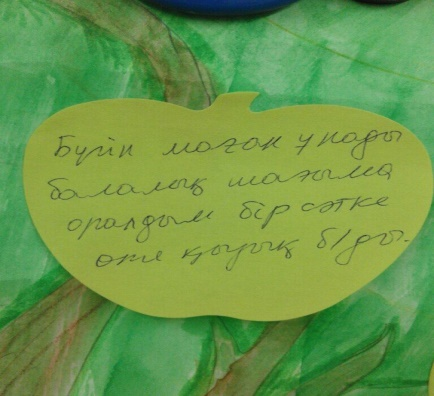 Бүгін маған ұнады
балалық шағыма
оралдым бір сәтке
өте қызық бұды.